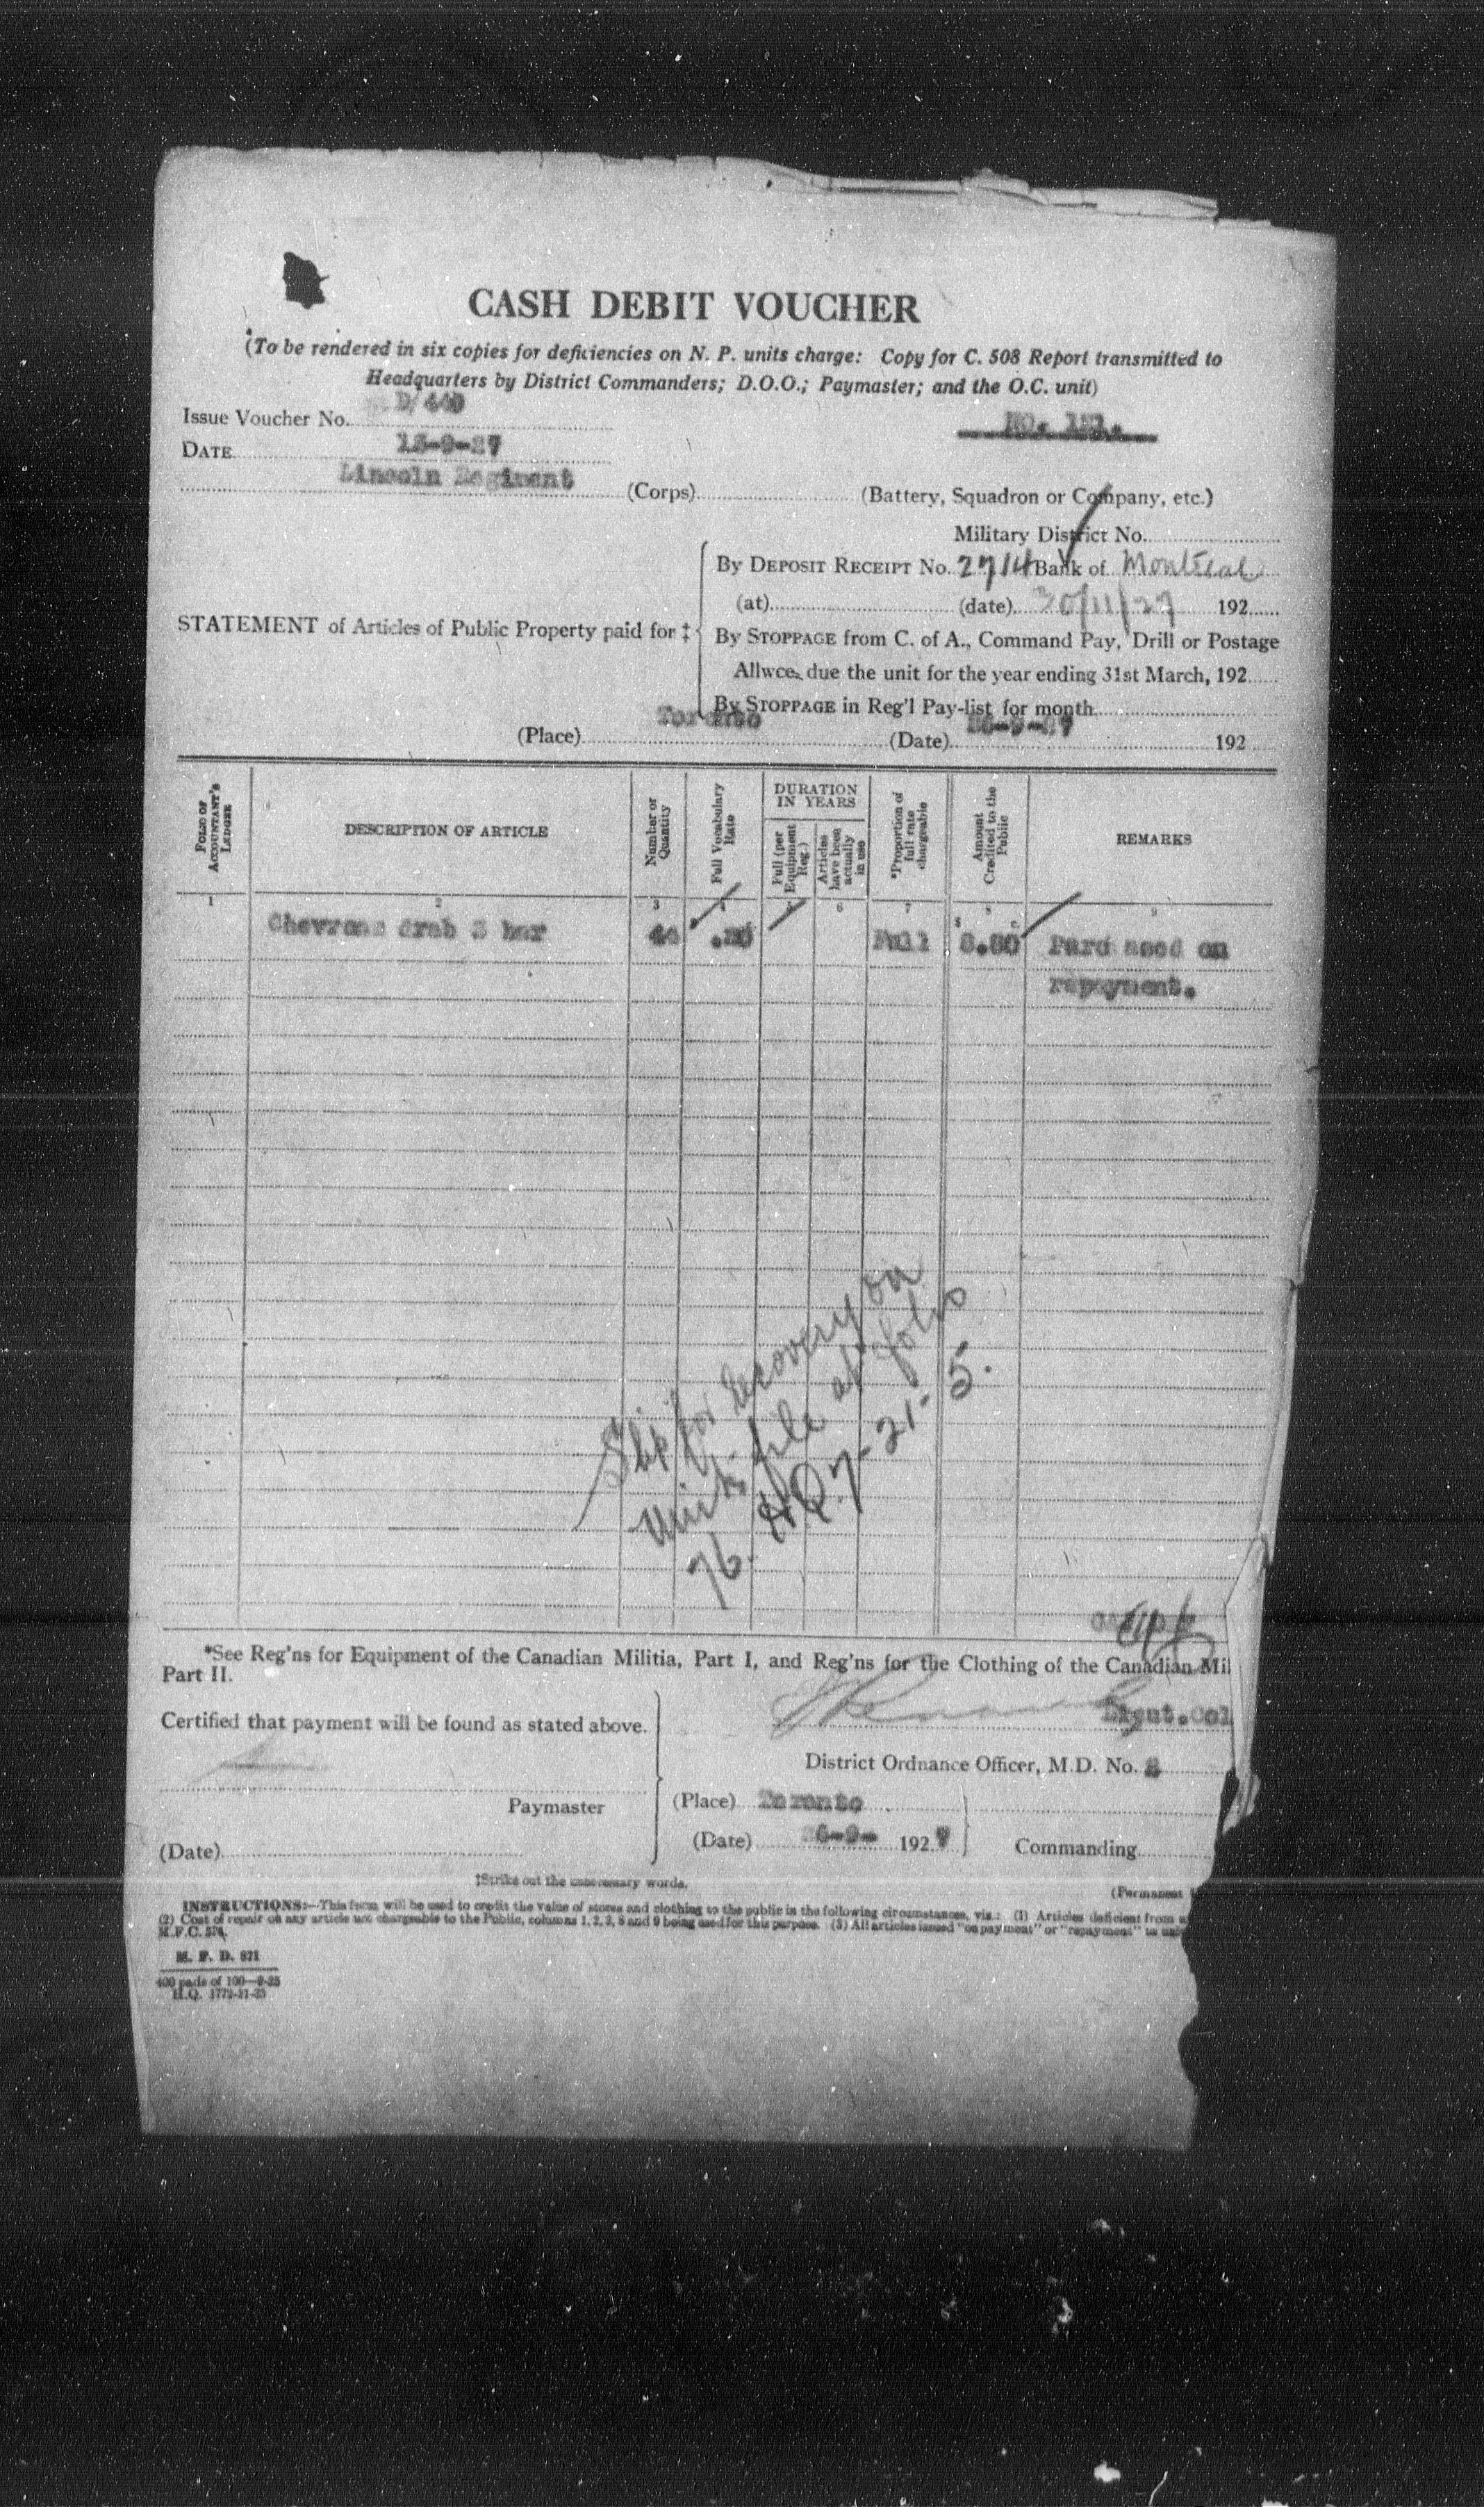 CASH DEBIT VOUCHER
(To be rendered in six copies for deficiencies on N. P. units charge: Copy for C. 508 Report transmitted to
Headquarters by District Commanders; D.O.O.; Paymaster; and the O.C. unit)
Issue Voucher No. D/440
NO. 121.
DATE 13-9-27
Lincoln Regiment (Corps) (Battery, Squadron or Company, etc.)
Military District No.
By DEPOSIT RECEIPT No. 2714 Bank of Montreal
(at) (date) 30/11/27 192
STATEMENT of Articles of Public Property paid for ‡
By STOPPAGE from C. of A., Command Pay, Drill or Postage
Allwce, due the unit for the year ending 31st March, 192
By STOPPAGE in Reg'l Pay-list for month
(Place) Toronto (Date) 26-9-27 192
FOLIO OF ACCOUNTANT'S LEDGER
DESCRIPTION OF ARTICLE
Number or Quantity
Full Vocabulary Rate
DURATION IN YEARS
Full (per Equipment Reg.)
Articles have been actually in use
*Proportion of full rate chargeable
Amount Credited to the Public
REMARKS
1 2 3 4 5 6 7 8 9
$ c
Chevrons drab 3 bar 44 .20 Full 8.80 Purchased on
repayment.
Slip for recovery on
Units file at folio
76. HQ 7-21-5.
*See Reg'ns for Equipment of the Canadian Militia, Part I, and Reg'ns for the Clothing of the Canadian Mil
Part II.
Certified that payment will be found as stated above.
Lieut.Col
District Ordnance Officer, M.D. No. 2
Paymaster
(Place) Toronto
(Date) 26-9- 1927
Commanding
(Date)
‡Strike out the unnecessary words.
(Permanent
INSTRUCTIONS:—This form will be used to credit the value of stores and clothing to the public in the following circumstances, viz.: (1) Articles deficient from
(2) Cost of repair on any article not chargeable to the Public, columns 1, 2, 3, 8 and 9 being used for this purpose. (3) All articles issued "on payment" or "repayment" to
M.F.C. 574.
M. F. D. 871
400 pads of 100—9-25
H.Q. 1772-21-25